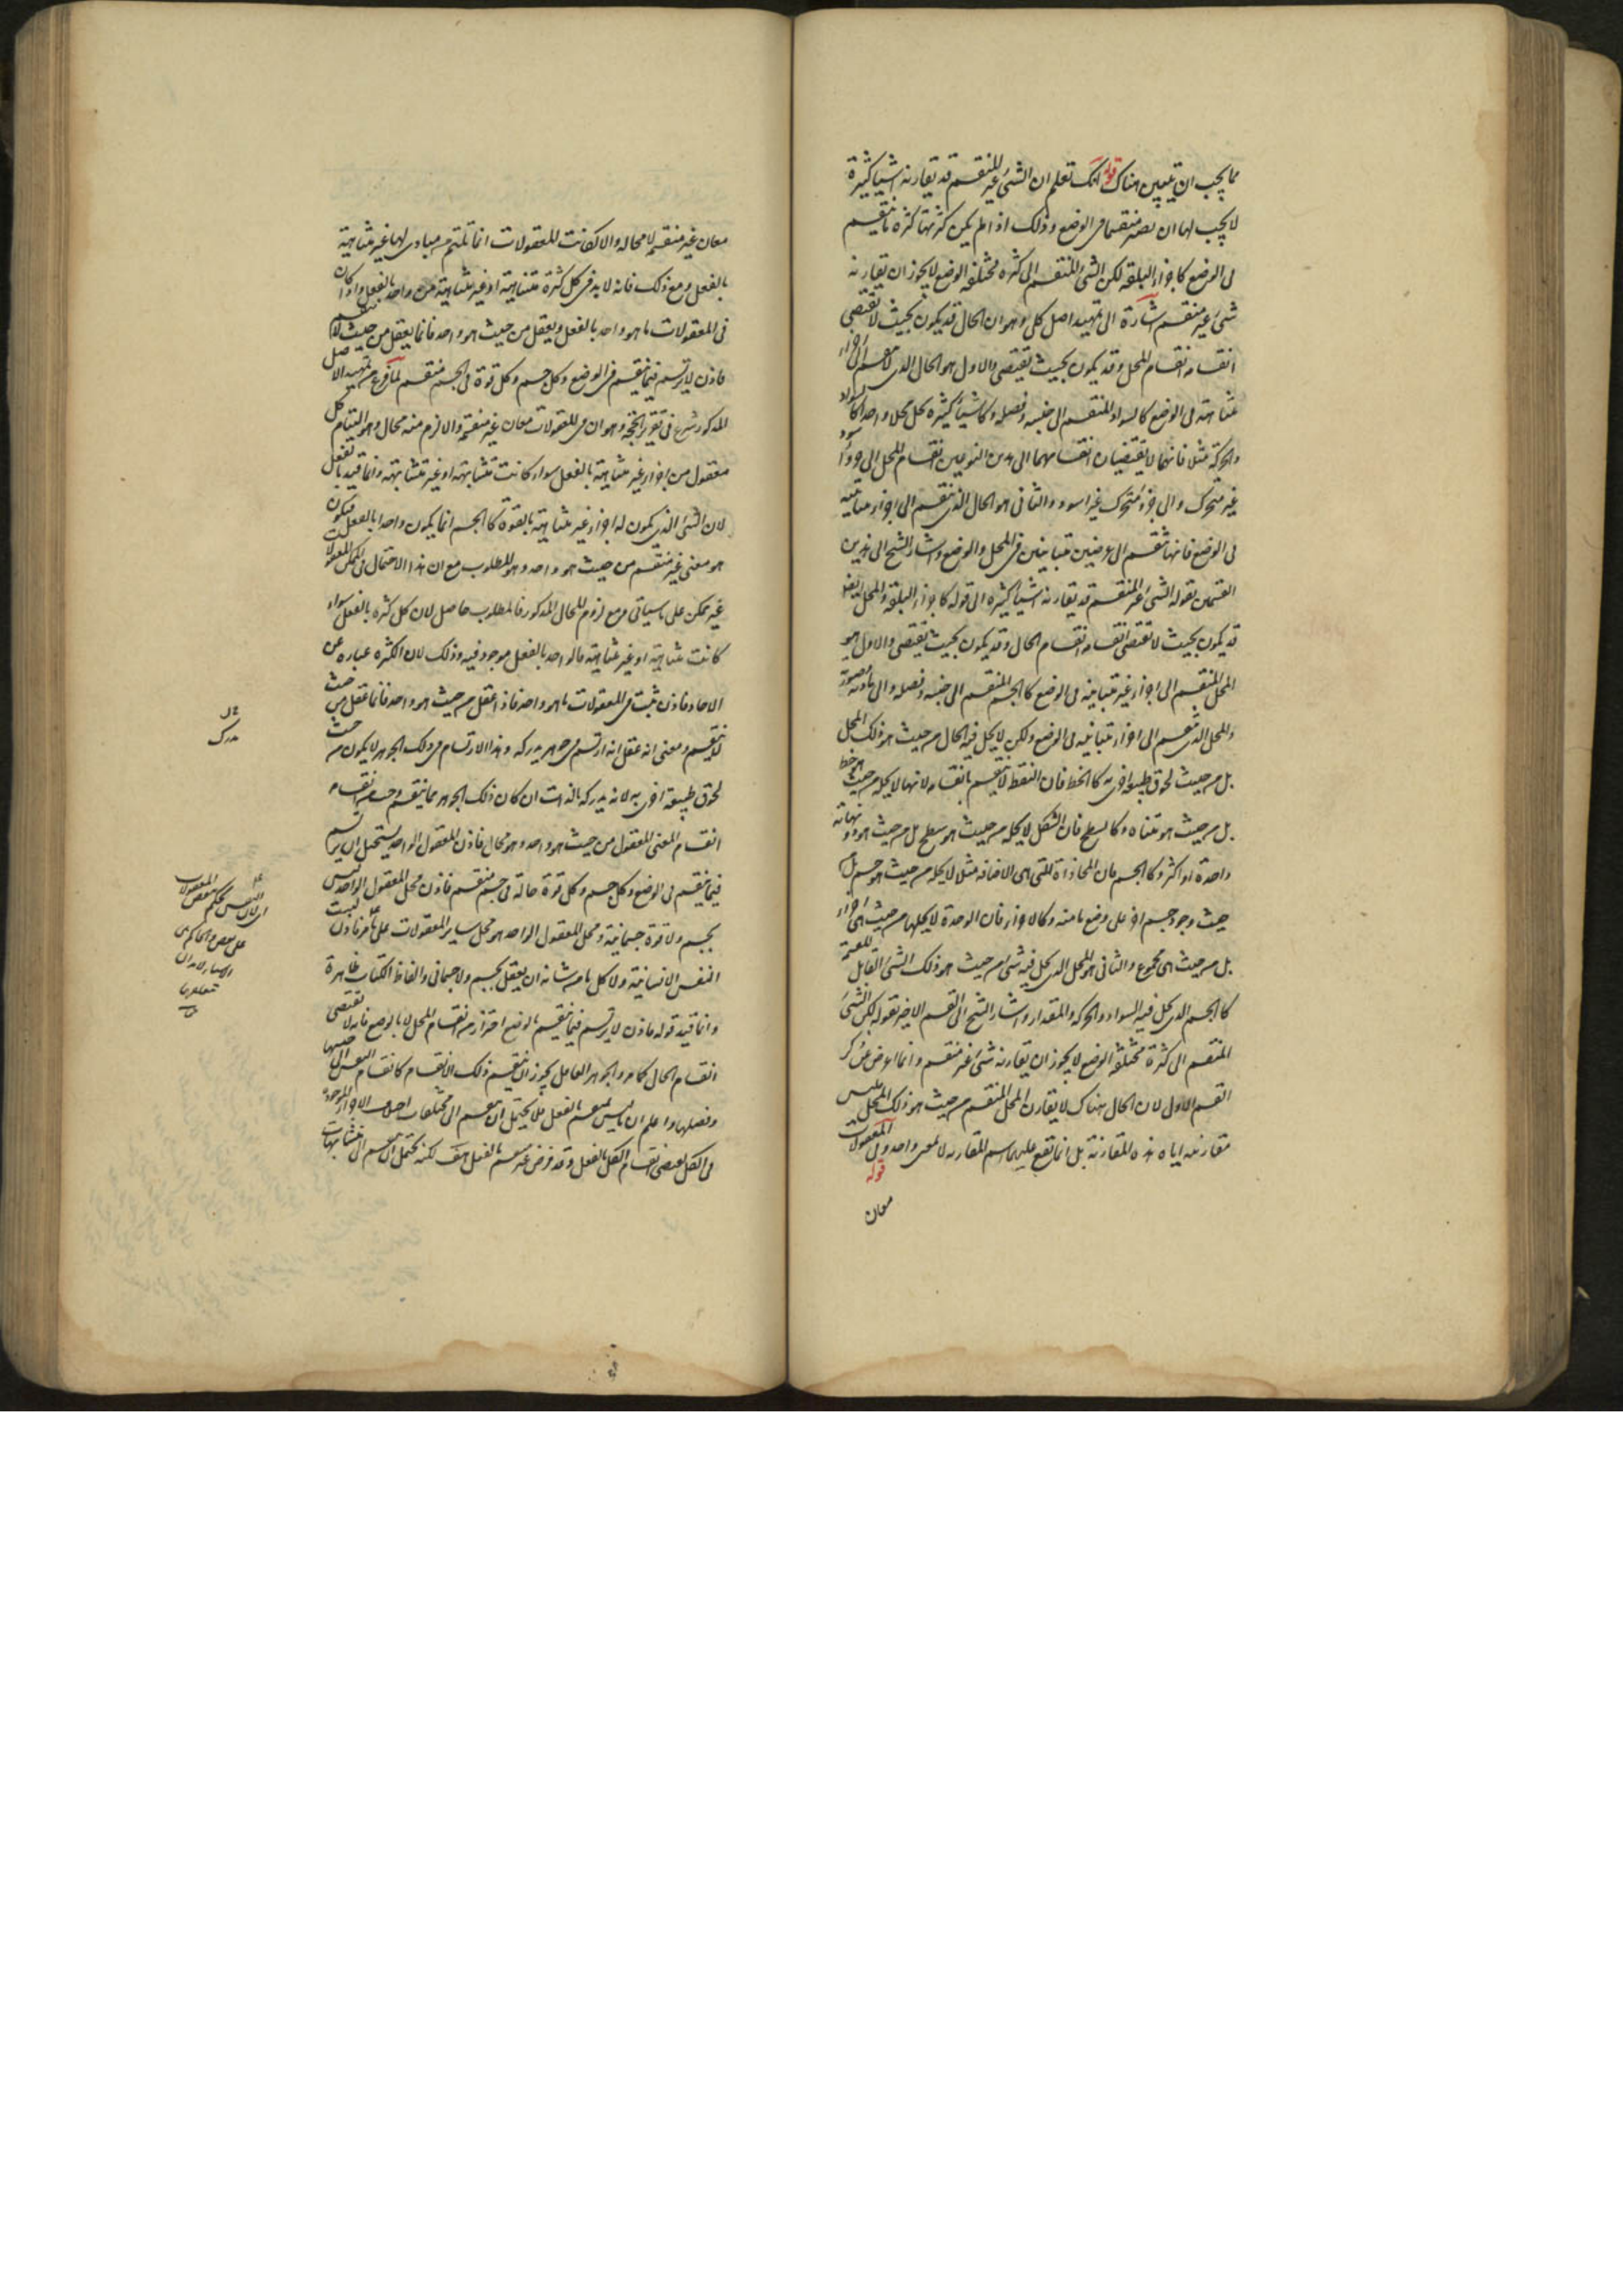 مما يجب ان يتبين هناك قوله انك تعلم ان الشئ غير المنقسم قد يقارنه اشيا كثيرة
لا يجب لها ان يصير منقسما فى الوضع وذلك اذا لم يكن كثرتها كثرة ما ينقسم
فى الوضع كاجزاء البلقة لكن الشئ المنقسم الى كثرة مختلفة الوضع لا يجوز ان يقارنه
شئ غير منقسم اشارة الى تمهيد اصل كلى وهو ان الحال قد يكون بحيث لا تقتضى
انقسامه انقسام المحل وقد يكون بحيث تقتضى والاول هو الحال الذى لا ينقسم الى اجزاء
متباينة فى الوضع كالسواد المنقسم الى جنسه وفصله وكاشيا كثيرة تحل محلا واحدا كالسواد
والحركة مثلا فانهما لا يقتضيان انقسامهما الى هذين النوعين انقسام المحل الى جزء اسود
غير متحرك والى جزء متحرك غير اسود والثانى هو الحال الذى ينقسم الى اجزاء متباينة
فى الوضع فانها تنقسم الى عرضين متباينين فى المحل والوضع واشار الشيخ الى هذين
القسمين بقوله الشئ غير المنقسم قد يقارنه اشيا كثيرة الى قوله كاجزاء البلقة والمحل ايضا
قد يكون بحيث لا تقتضى انقسامه انقسام الحال وقد يكون بحيث يقتضى والاول هو
المحل المنقسم الى اجزاء غير متباينة فى الوضع كالجسم المنقسم الى جنسه وفصله والى مادته وصورته
والمحل الذى ينقسم الى اجزاء متباينة فى الوضع ولكن لا يحل فيه الحال من حيث هو ذلك المحل
بل من حيث لحوق طبيعة اخرى به كالخط فان النقط لا تنقسم بانقسامه لانها لا تحله من حيث هو خط
بل من حيث هو متناه وكالسطح فان الشكل لا يحله من حيث هو سطح بل من حيث هو ذو نهاية
واحدة او اكثر وكالجسم فان المحاذاة التى هى الاضافة مثلا لا يحله من حيث هو جسم بل من
حيث وجود جسم اخر على وضع ما منه وكالاجزاء فان الوحدة لا تحلها من حيث هى اجزاء
بل من حيث هى مجموع والثانى هو المحل الذى يحل فيه شئ من حيث هو ذلك الشئ القابل للقسمة
كالجسم الذى يحل فيه السواد والحركة والمقدار واشار الشيخ الى القسم الاخير بقوله لكن الشئ
المنقسم الى كثرة مختلفة الوضع لا يجوز ان يقارنه شئ غير منقسم وانما اعرض عن ذكر
القسم الاول لان الحال هناك لا يقارن المحل المنقسم من حيث هو ذلك المحل فليس
مقارنته اياه هذه المقارنة بل انما تقع عليهما اسم المقارنة لا بمعنى واحد قوله وفى المعقولات
معان
معان غير منقسمة لا محالة والا لكانت المعقولات انما تلتئم من مبادى لها غير متناهية
بالفعل ومع ذلك فانه لا بد فى كل كثرة متناهية او غير متناهية من واحد بالفعل واذا كان
فى المعقولات ما هو واحد بالفعل ويعقل من حيث هو واحد فانما يعقل من حيث لا ينقسم
فاذن لا يرتسم فيما ينقسم فى الوضع وكل جسم وكل قوة فى الجسم منقسم لما فرغ من تمهيد الاصل
المذكور شرع فى تقرير الحجة وهو ان فى المعقولات معان غير منقسمة والا لزم منه محال وهو التيام كل
معقول من اجزاء غير متناهية بالفعل سواء كانت متشابهة او غير متشابهة وانما قيد بالفعل
لان الشئ الذى يكون له اجزاء غير متناهية بالقوة كالجسم انما يكون واحدا بالفعل فيكون
هو معنى غير منقسم من حيث هو واحد وهو المطلوب مع ان هذا الاحتمال فى المعقولات
غير ممكن على ما سياتى ومع لزوم المحال المذكور فالمطلوب حاصل لان كل كثرة بالفعل سواء
كانت متناهية او غير متناهية فالواحد بالفعل موجود فيه وذلك لان الكثرة عبارة عن
الاحاد فاذن ثبت فى المعقولات ما هو واحد فاذا عقل من حيث هو واحد فانما تعقل من حيث
لا ينقسم ومعنى انه عقل انه ارتسم فى جوهر يدركه وهذا الارتسام فى ذلك الجوهر لا يكون من حيث
لحوق طبيعة اخرى به لانه يدركه بالذات ان كان ذلك الجوهر مما ينقسم وجب من انقسامه
انقسام المعنى المعقول من حيث هو واحد وهو محال فاذن المعقول الواحد يستحيل ان يرتسم
فيما ينقسم فى الوضع وكل جسم وكل قوة حالة فى جسم منقسم فاذن محل المعقول الواحد ليس
بجسم ولا قوة جسمانية ومحل المعقول الواحد هو محل ساير المعقولات على ما مر فاذن ليست
النفس الانسانية ولا كل ما من شانه ان يعقل بجسم ولا جسمانى والفاظ الكتاب ظاهرة
وانما قيد قوله فاذن لا يرتسم فيما ينقسم بالوضع احترازا من انقسام المحل لا بالوضع فانه لا تقتضى
انقسام الحال كما مر والجوهر العاقل يجوز ان ينقسم ذلك الانقسام كانقسام النفس الى جنسها
وفصلها واعلم ان ما ليس بمنقسم بالفعل فلا يحتمل ان ينقسم الى مختلفات اجزاء لان الاجزاء الموجودة
فى الكل يقتضى انقسام الكل بالفعل وقد فرض غير منقسم بالفعل هف لكنه يحتمل ان ينقسم الى متشابهات